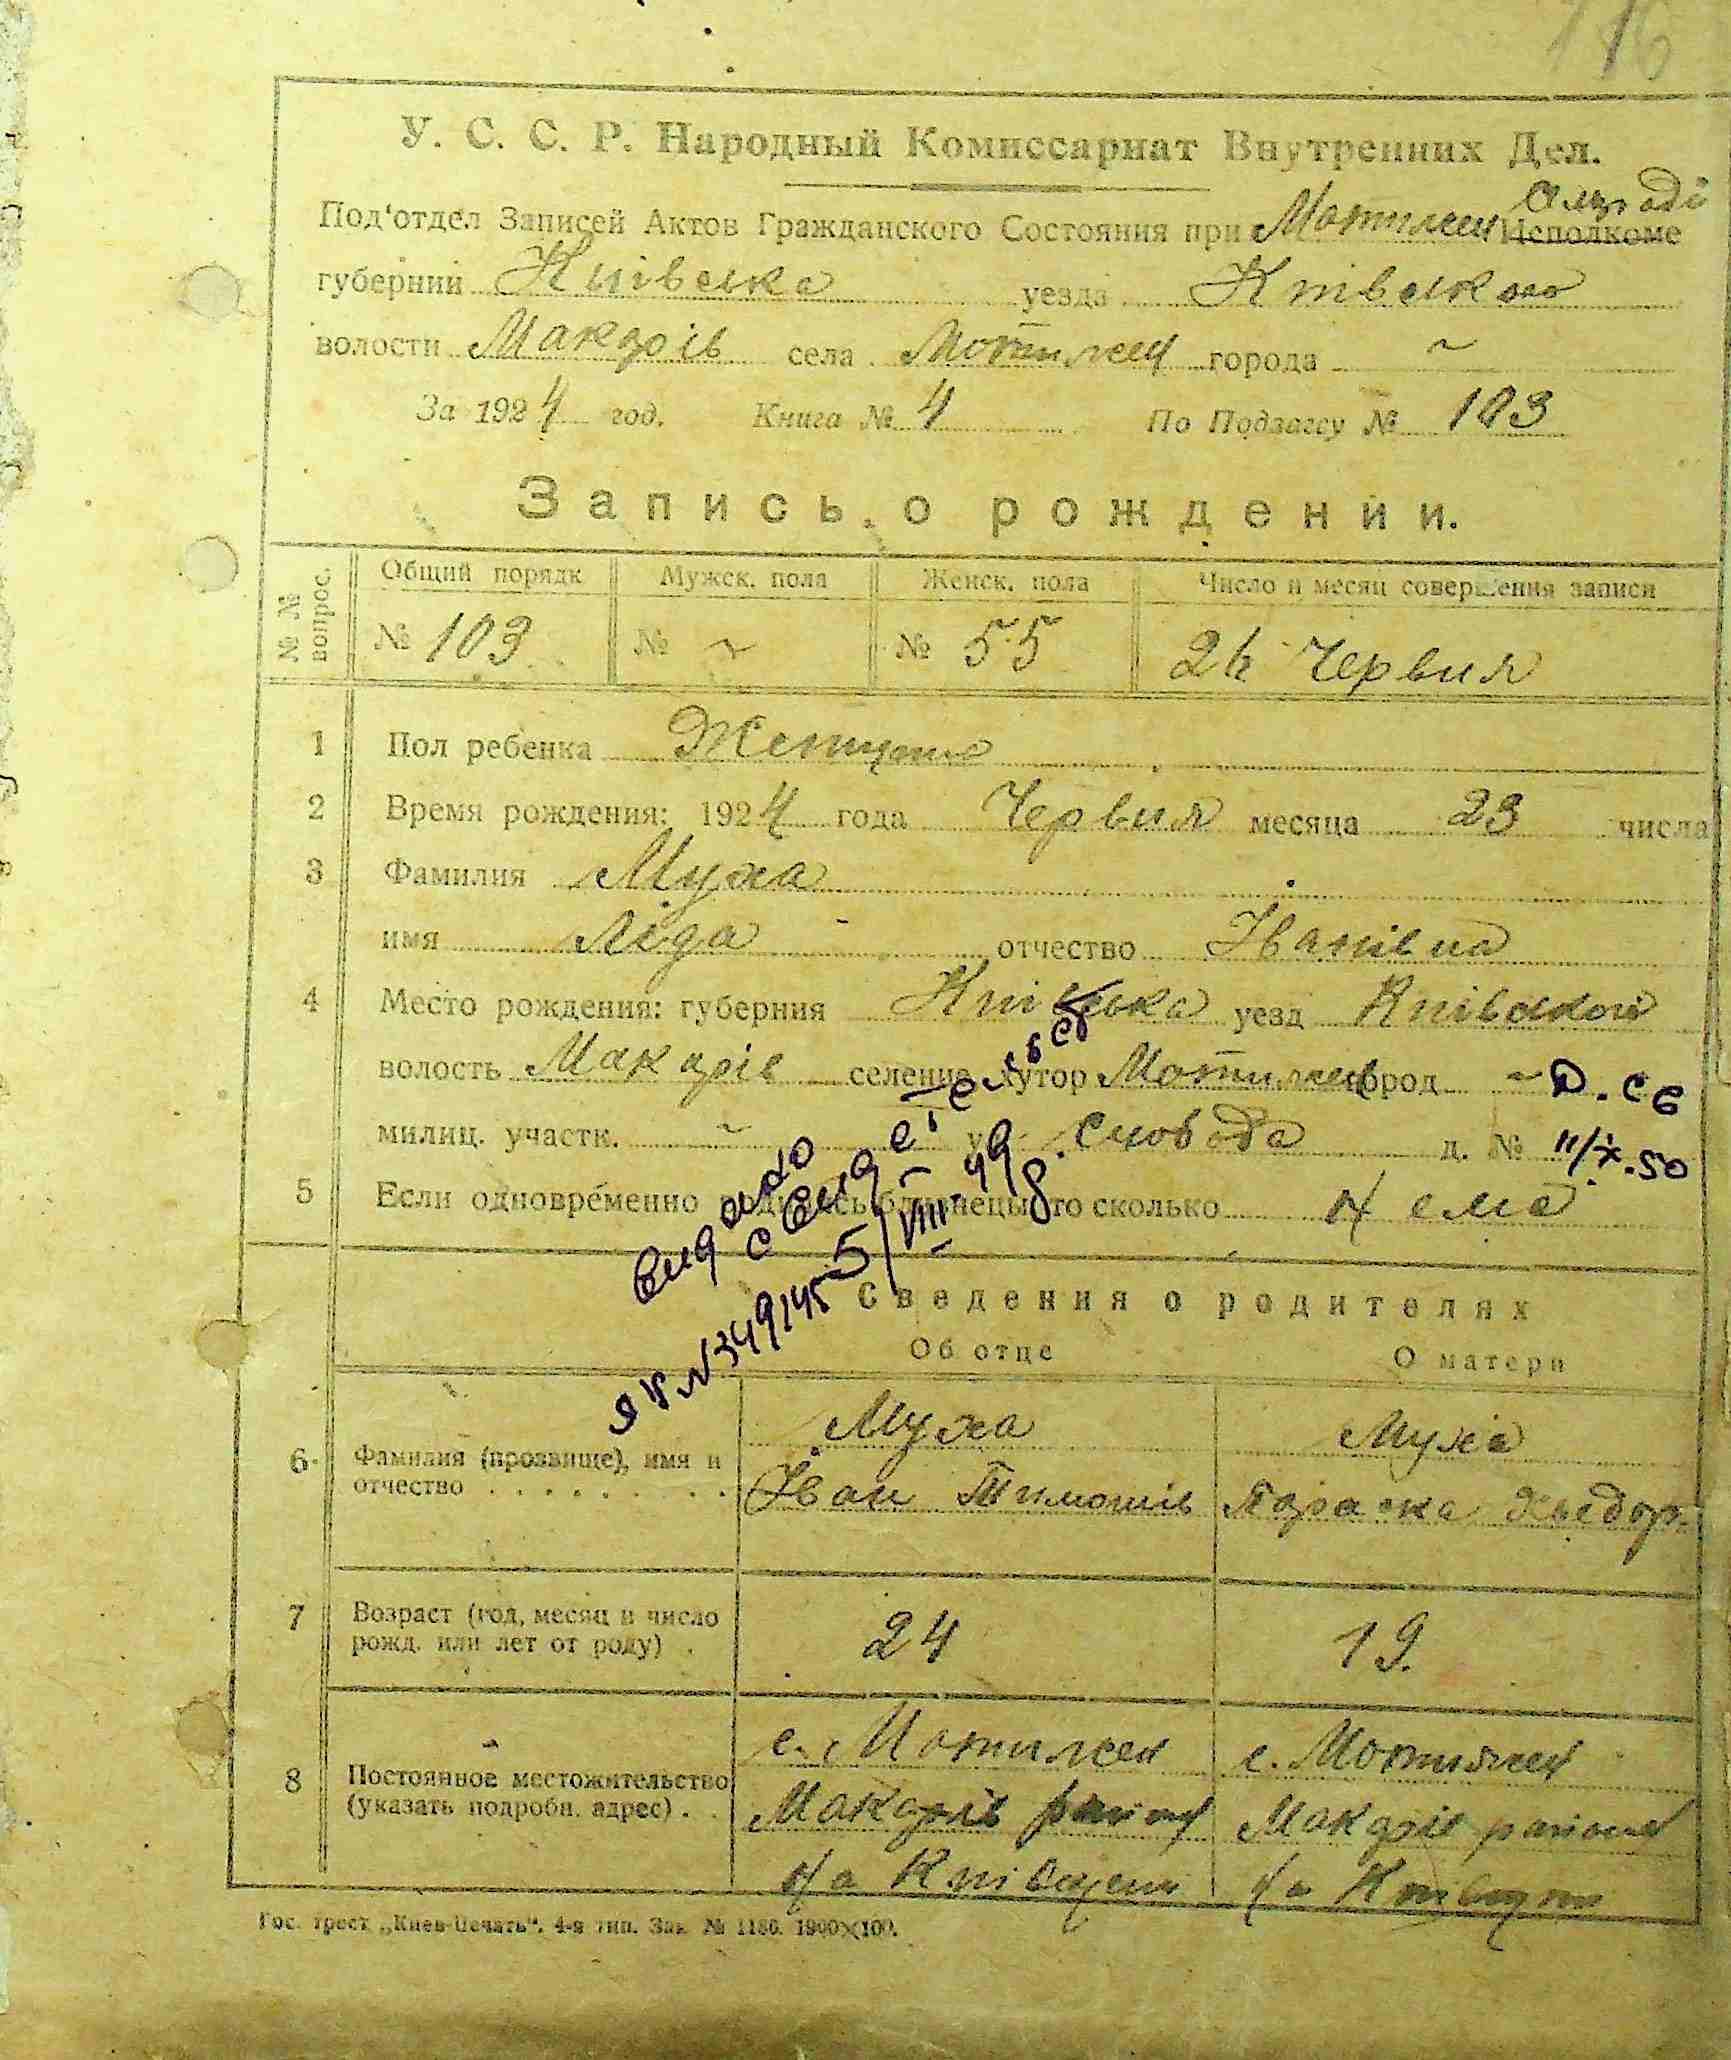 116
У. С. С. Р. Народный Комиссариат Внутренних Дел.
Под'отдел Записей Актов Гражданского Состояния при Мотижен Исполкоме
губернии Київська уезда Київсько
волости Макарів села Мотижен города ~
За 1924 год. Книга № 4 По Подзагсу № 103
Запись о рождении.
№ № вопрос. Общий порядк Мужск. пола Женск. пола Число и месяц совершения записи
№ 103 № ~ № 55 24 Червня
1 Пол ребенка Женщина
2 Время рождения: 1924 года Червня месяца 23 числа
3 Фамилия Муха
имя Ліда отчество Іванівна
4 Место рождения: губерния Київська уезд Київської
волость Макарів селение хутор Мотижен город ~ Д. св
милиц. участк. ~ у. Слобода д. № 11/X.50
5 Если одновременно родились близнецы, то сколько Нема
Видано
свид
5/VIII-49
ЯЧ №349145
Сведения о родителях
Об отце О матери
6 Фамилия (прозвище), имя и отчество . . . . . . . .
Муха Муха
Іван Тимошів Параска Хведор.
7 Возраст (год, месяц и число рожд. или лет от роду) . 24 19.
8 Постоянное местожительство (указать подробн. адрес) . .
с. Мотижен с. Мотижен
Макарів району Макарів району
на Київщені на Київщені
Гос. трест „Киев-Печать“. 4-я тип. Зак. № 1186. 1900×100.